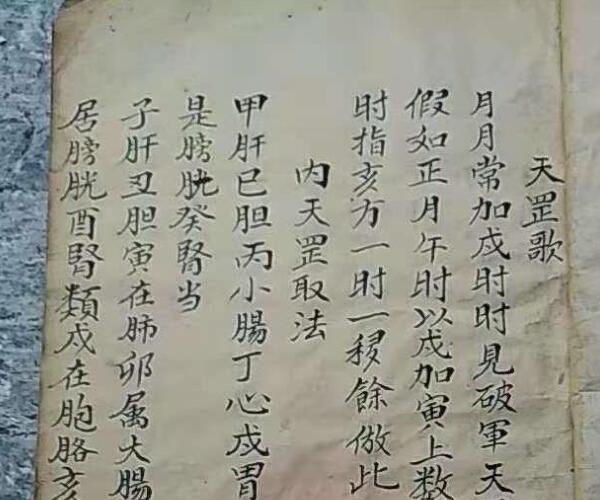 天罡歌
月月常加戌时时見破軍天
假如正月午时以戌加寅上数
时指亥方一时一移餘倣此
内天罡取法
甲肝已胆丙小腸丁心戌胃
是膀胱癸腎当
子肝丑胆寅在肺卯属大腸
居膀胱酉腎類戍在胞胳亥